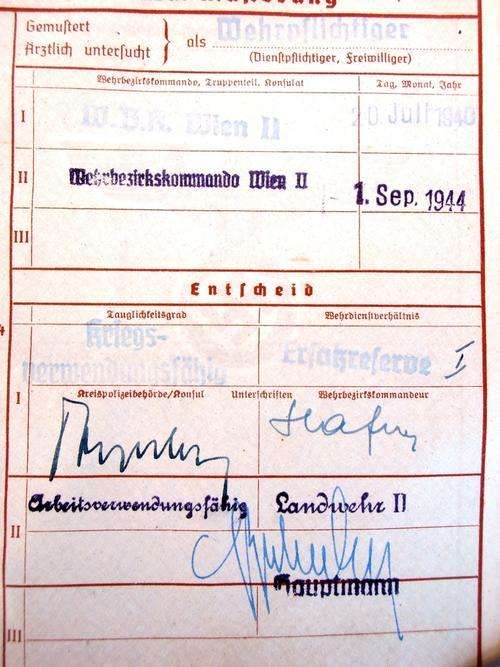 Gemustert
Ärztlich untersucht } als Wehrpflichtiger
(Dienstpflichtiger, Freiwilliger)
Wehrbezirkskommando, Truppenteil, Konsulat Tag, Monat, Jahr
I W.B.K. Wien II 20 Juli 1940
II Wehrbezirkskommando Wien II 1. Sep. 1944
III
Entscheid
Tauglichkeitsgrad Wehrdienstverhältnis
Kriegs-
verwendungsfähig Ersatzreserve I
I Kreispolizeibehörde/Konsul Unterschriften Wehrbezirkskommandeur
Arbeitsverwendungsfähig Landwehr II
II
Hauptmann
III